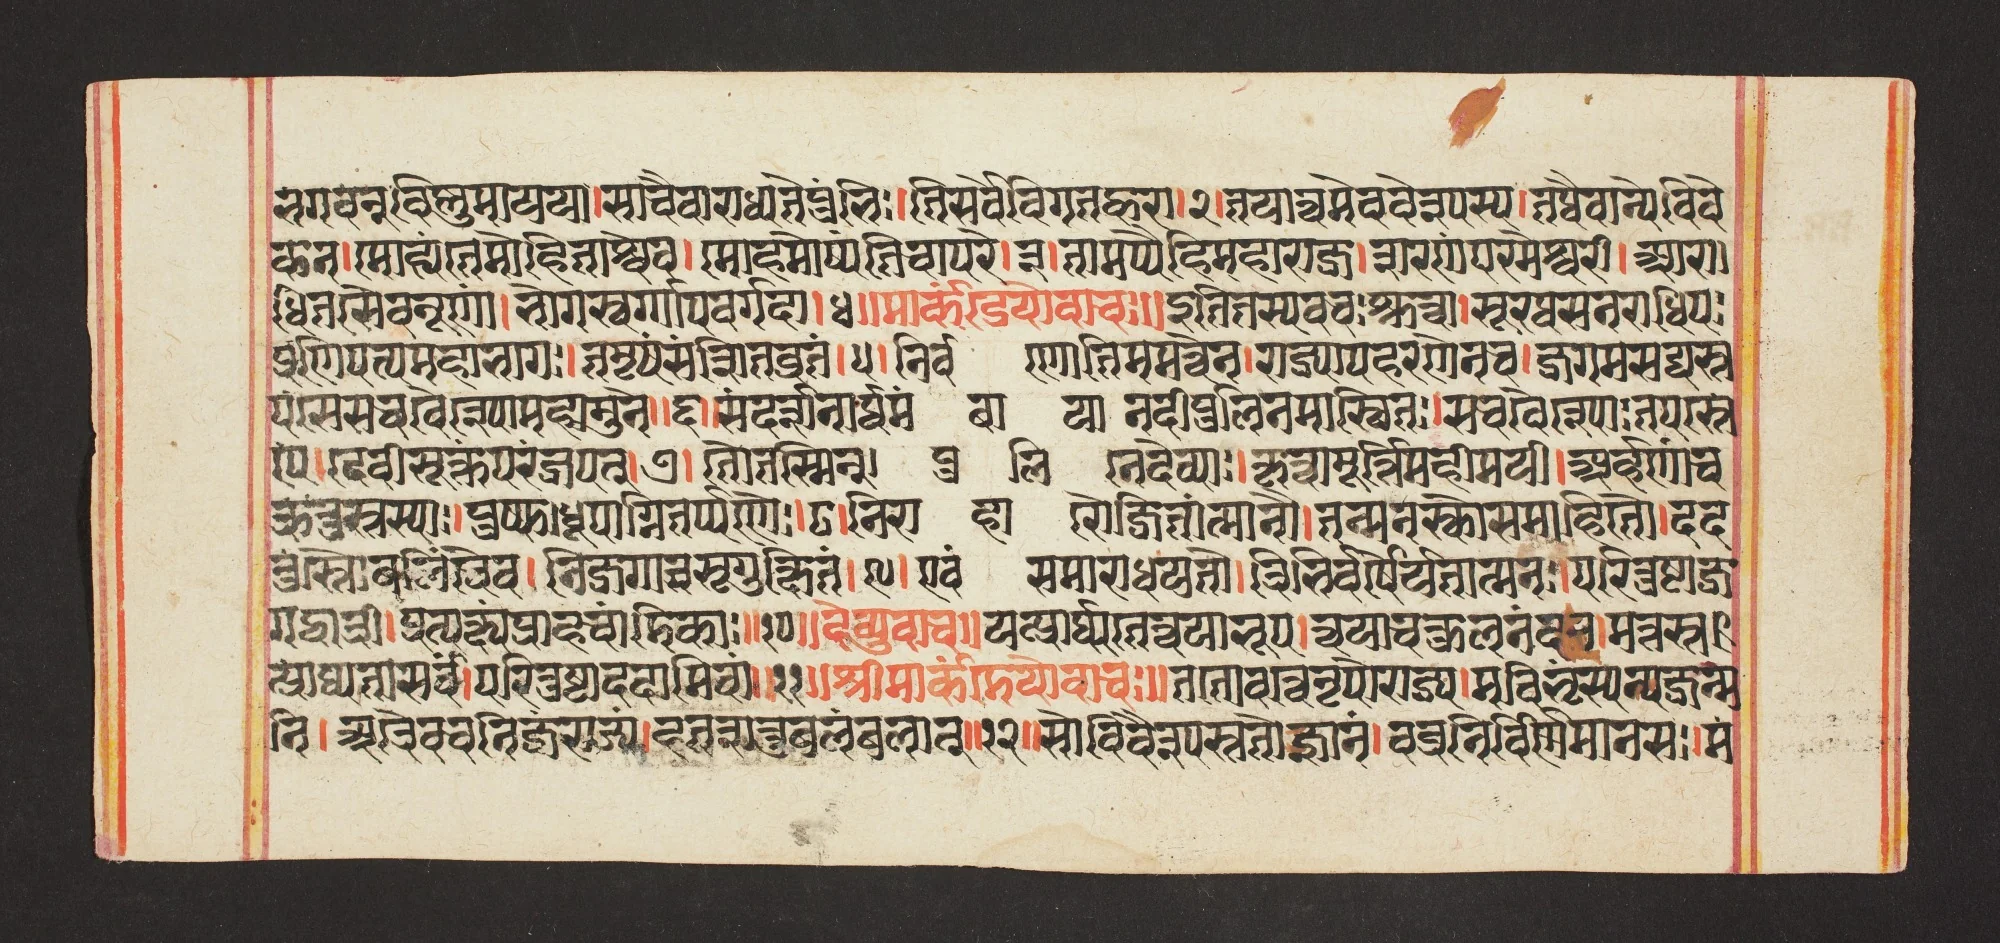 भगवन् विस्नुमायया।साचैवाराध्यतेपुंभिः।तिसर्वेविगतज्वरा।२।तयात्वमेववैश्यस्य।तथैवान्येविवे
किन।मोह्यंतेमोहिताश्चैव।मोहमेष्यंतिचापरे।३।तामुपैहिमहाराज।शरणंपरमेश्वरी।आरा
धितासैवनृणां।भोगस्वर्गापवर्गदा।४॥मार्कंडेयोवाचः॥इतितस्यवचःश्रुत्वा।सूरथसनराधिपः
प्रणिपत्यमहाभागः।तमृषिंसंशितव्रतं।५।निर्वि ण्णोतिममत्वेन।राज्यापहरणेनच।जगामसद्यस्त
पसेसचवैश्योमहामुने॥६॥संदर्शनार्थमं बा या नदीपुलिनमास्थितः।सचवैश्योःतपस्ते
पे।देवीसूक्तंपरंजपन्।७।तौतस्मिन् पु लि नेदेव्याः।कृत्वामूर्त्तिमहीमयी।अर्हणांच
क्रतुस्तस्याः।पुष्पधूपाग्नितर्प्पणैः।८।निरा हा रौजितात्मानौ।तन्मनस्कौसमाहितौ।दद
तुस्तौबलिंचैव।निजगात्रसृगुक्षितं।९।एवं समाराधयतौ।त्रिभिर्वर्षैर्यतात्मनः।परितुष्टाज
गद्धात्री।प्रत्यक्षंप्राहचंडिकाः॥१०॥देव्युवाच॥यत्प्रार्थ्यतेत्वयाभूप।त्वयाचकुलनंदन।मत्तस्त
त्प्राप्यतासर्वं।परितुष्टाददामिवां॥११॥श्रीमार्कंडेयोवाचः॥ततोवव्रेनृपोराज्य।मविभ्रंस्यन्यजन्म
नि।अत्रैवचनिजंराज्यं।हतशत्रुबलंबलात्॥१२॥सोविवैश्यस्ततोज्ञानं।वव्रेनिर्विण्णमानसः।मं